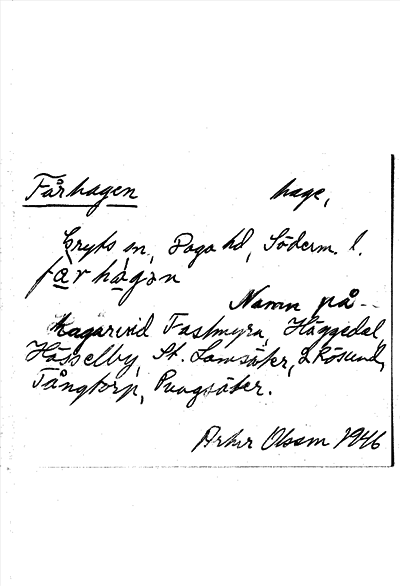 Fårhagen hage,
Gryts sn, Daga hd, Söderm. l.
Namn på
hagar vid Fastmyra, Häggedal,
Hässelby, St. Lamsäter, L. Rösund,
Tångtorp, Prugsäter.
Arkir Olssm 1946